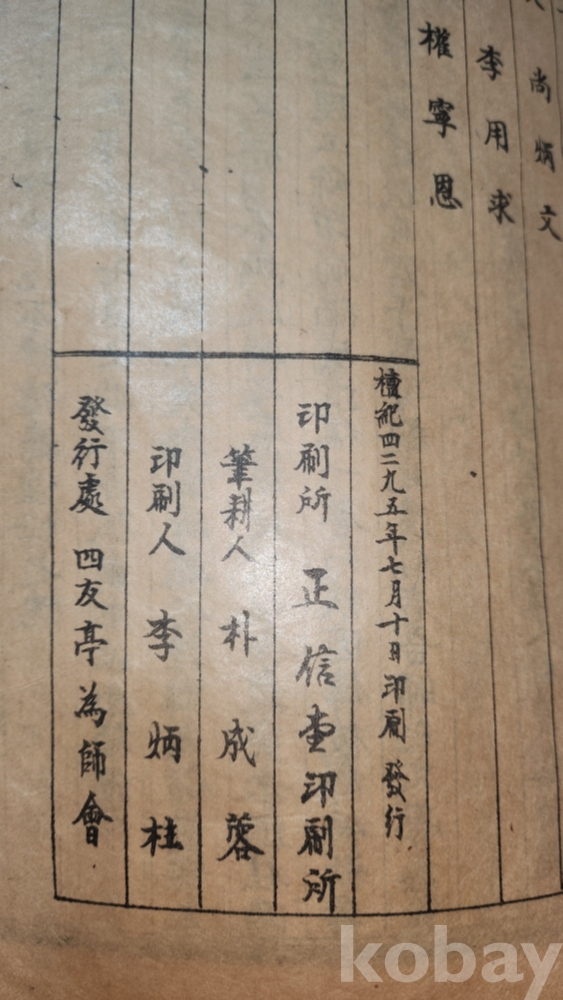 尚炳文
李用求
權寧恩
檀紀四二九五年七月十日印刷 發行
印刷所 正信堂印刷所
筆耕人 朴成蓉
印刷人 李炳柱
發行處 四友亭為師會
kobay